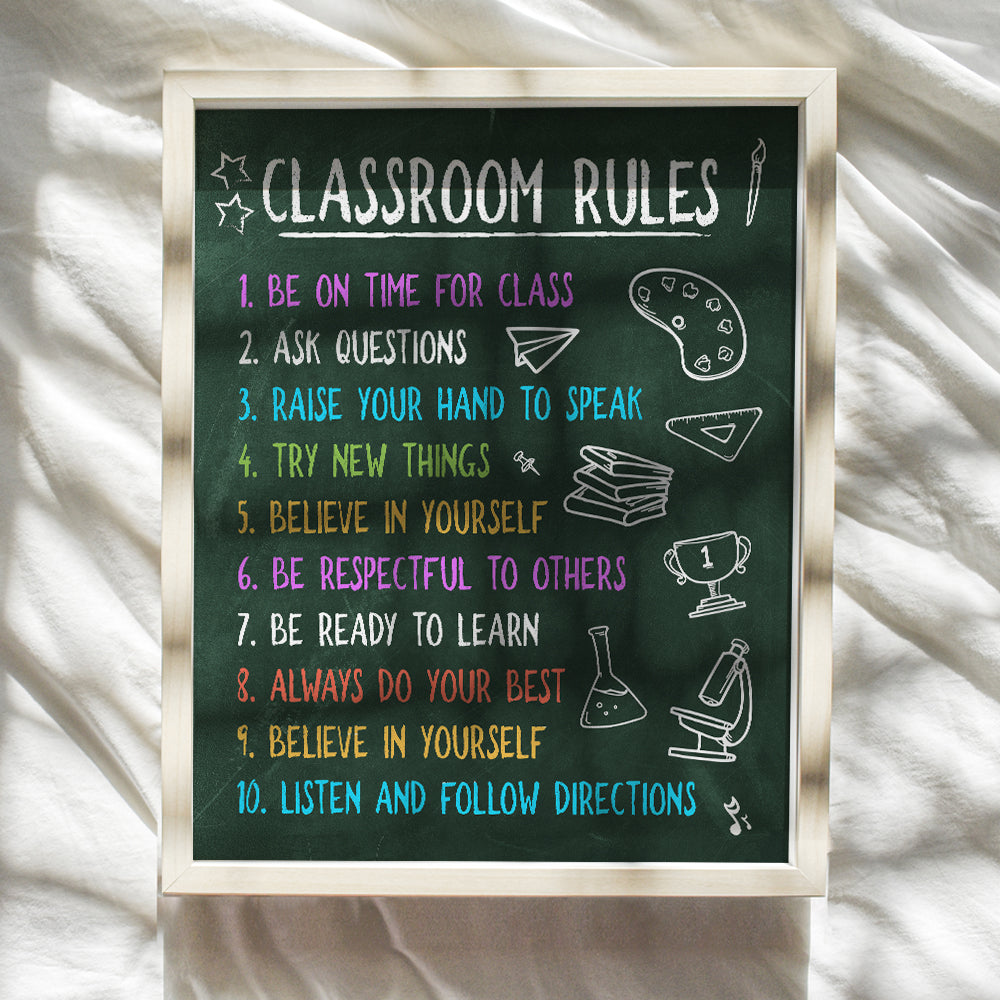 CLASSROOM RULES
1. BE ON TIME FOR CLASS
2. ASK QUESTIONS
3. RAISE YOUR HAND TO SPEAK
4. TRY NEW THINGS
5. BELIEVE IN YOURSELF
6. BE RESPECTFUL TO OTHERS
1
7. BE READY TO LEARN
8. ALWAYS DO YOUR BEST
9. BELIEVE IN YOURSELF
10. LISTEN AND FOLLOW DIRECTIONS